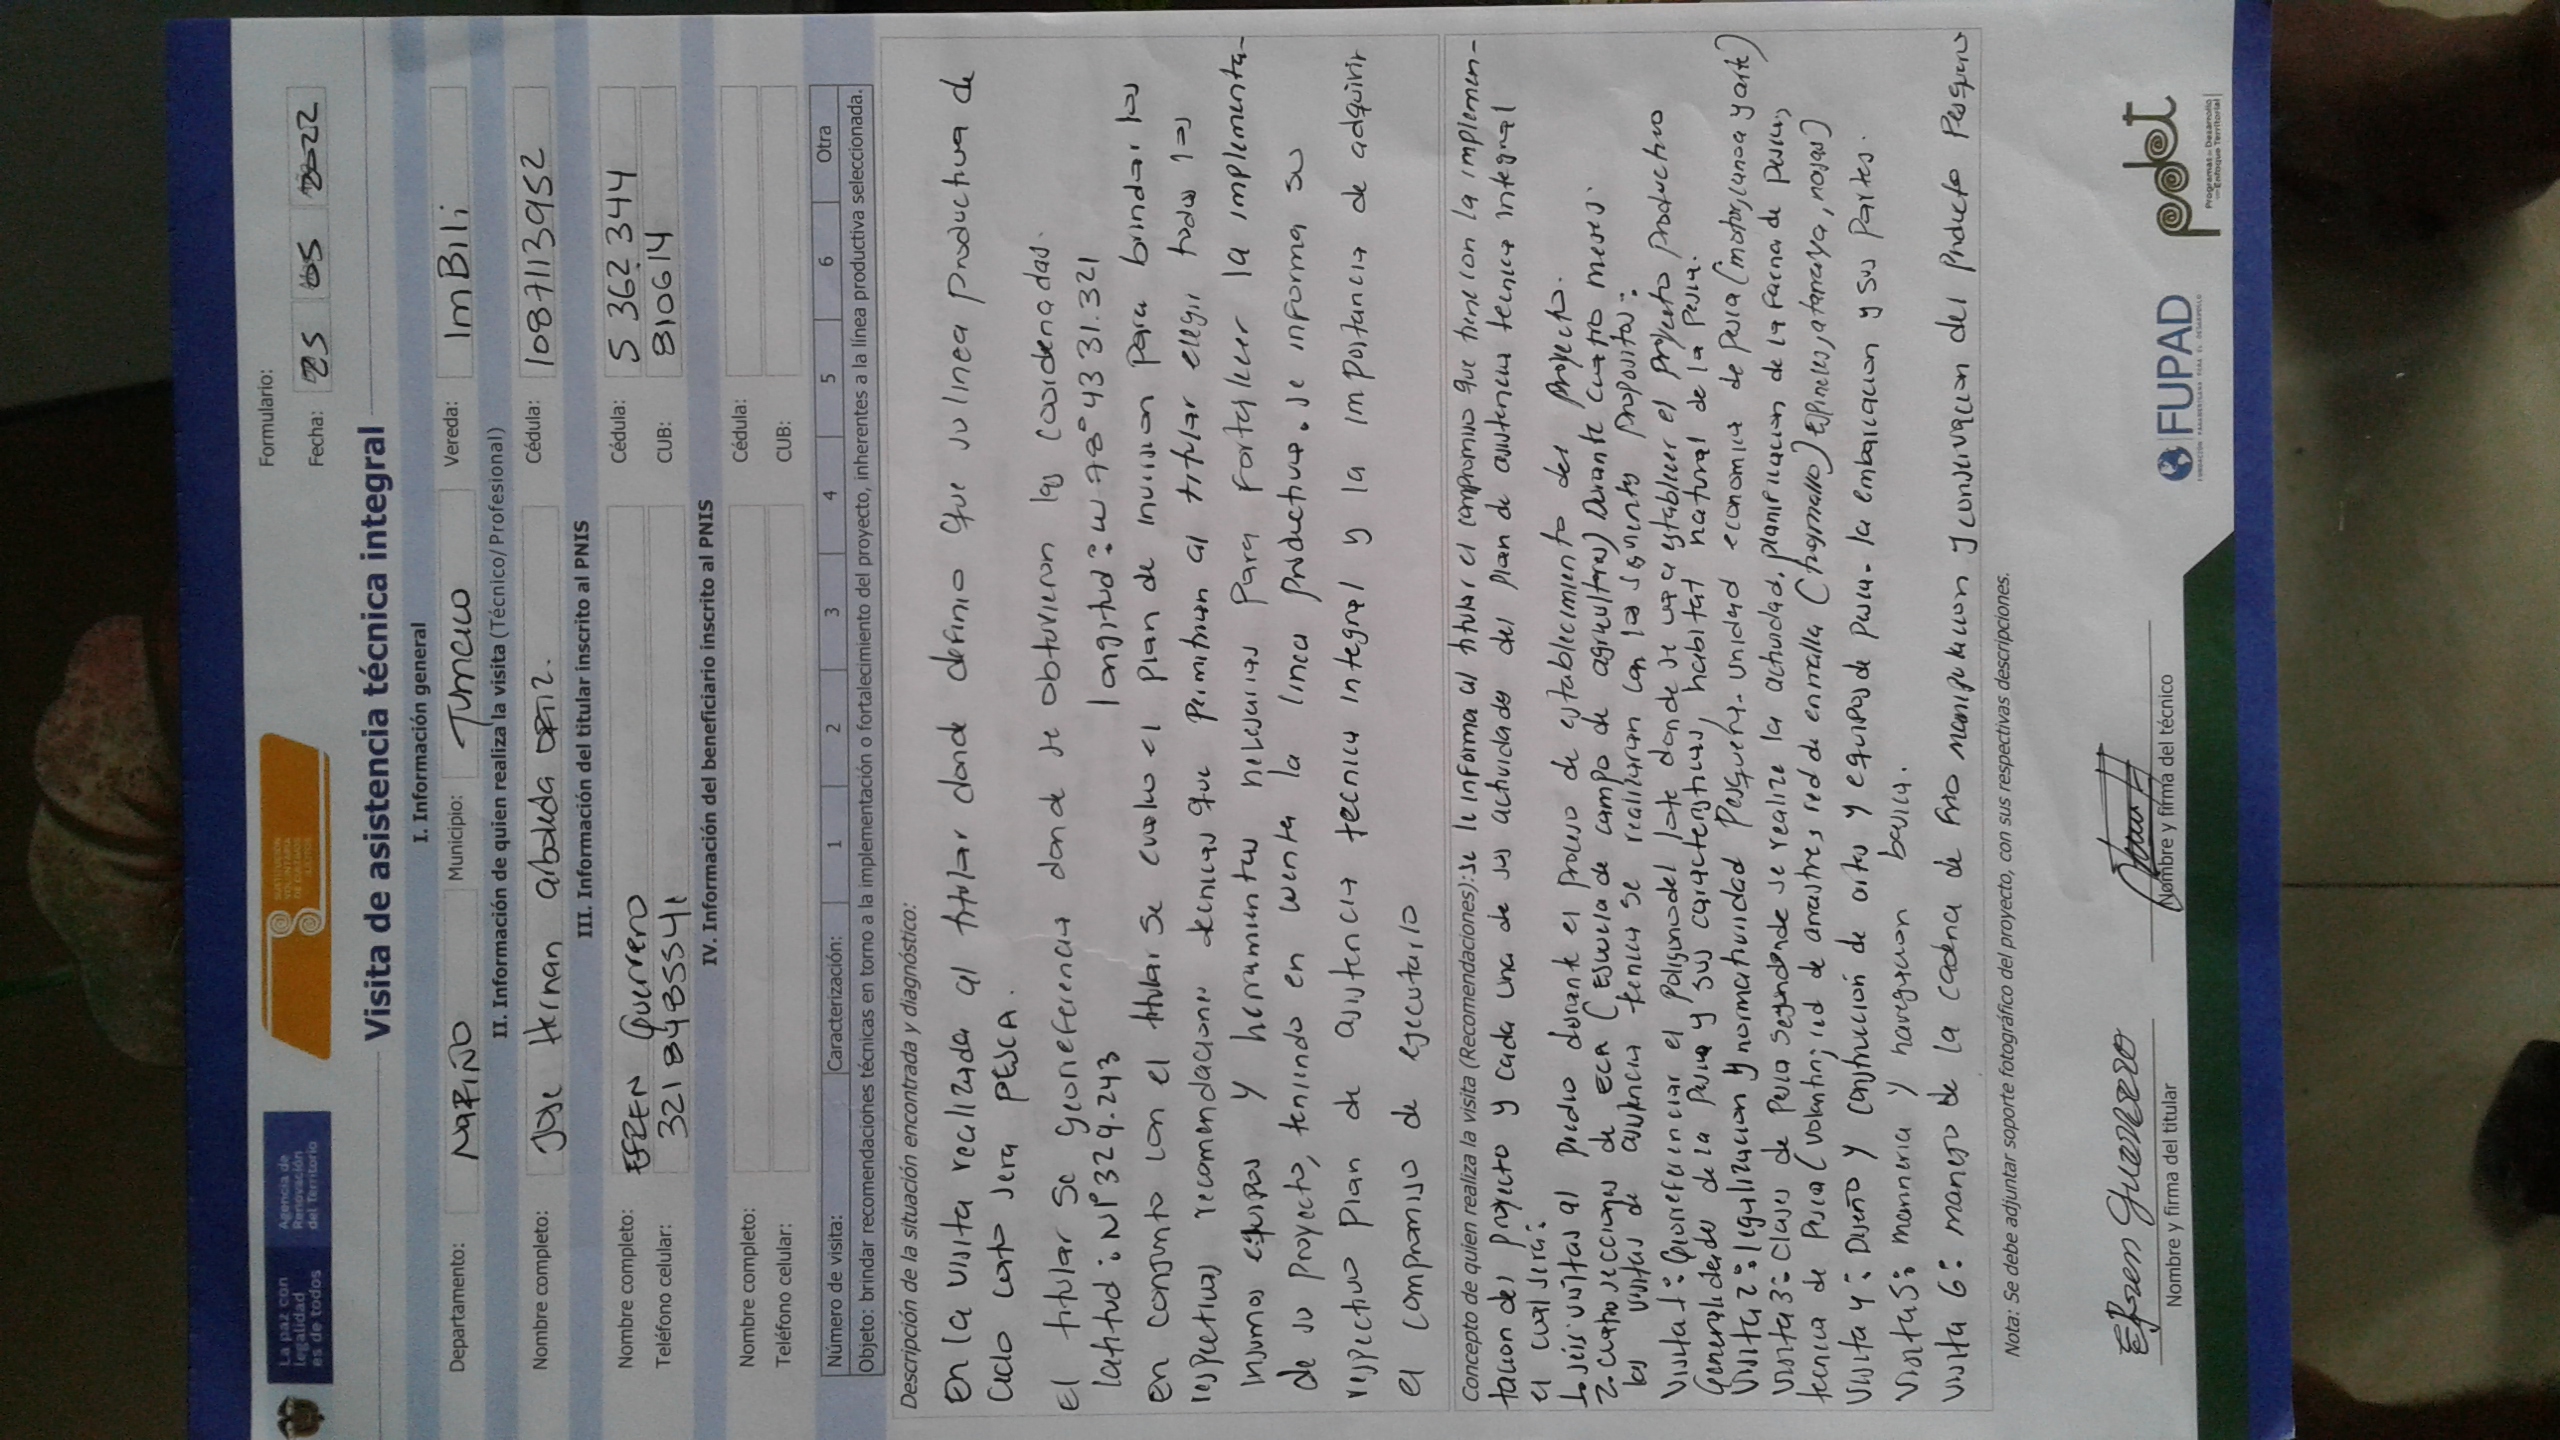 La paz con
legalidad
es de todos
Agencia de
Renovación
del Territorio
SUSTITUCIÓN
VOLUNTARIA
DE CULTIVOS
ILÍCITOS
Formulario:
Fecha: 25 05 2022
Visita de asistencia técnica integral
I. Información general
Departamento: NARIÑO Municipio: Tumaco Vereda: ImBili
II. Información de quien realiza la visita (Técnico/ Profesional)
Nombre completo: Jose Hernan arboleda ortiz. Cédula: 1087113952
III. Información del titular inscrito al PNIS
Nombre completo: EFREN Guerrero Cédula: 5 362 344
Teléfono celular: 3218485541 CUB: 810614
IV. Información del beneficiario inscrito al PNIS
Nombre completo: Cédula:
Teléfono celular: CUB:
Número de visita: Caracterización: 1 2 3 4 5 6 Otra
Objeto: brindar recomendaciones técnicas en torno a la implementación o fortalecimiento del proyecto, inherentes a la línea productiva seleccionada.
Descripción de la situación encontrada y diagnóstico:
En la visita realizada al titular donde definio que su linea productiva de
ciclo corto sera PESCA.
El titular se georeferencia donde se obtuvieron las coordenadas.
latitud: N1°32 9.243 longitud: W 78° 43 31.321
en conjunto con el titular se evaluo el plan de inversion para brindar las
respectivas recomendaciones tecnicas que permitiran al titular elegir todas las
insumos equipos y herramientas necesarias para fortalecer la implementa-
de su proyecto, teniendo en cuenta la linea productiva. se informa su
respectivo plan de asistencia tecnica integral y la importancia de adquirir
el compromiso de ejecutarlo
Concepto de quien realiza la visita (Recomendaciones): se le informa al titular el compromiso que tiene con la implemen-
tacion del proyecto y cada una de sus actividades del plan de asistencia tecnica integral
el cual sera:
1. seis visitas al predio durante el proceso de establecimiento del proyecto.
2. cuatro secciones de ECA (Escuela de campo de agricultores) Durante cuatro meses.
las visitas de asistencia tecnica se realizaran con los siguiente propositos:
Visita 1: Georeferenciar el poligono del lote donde se va a establecer el proyecto productivo
Generalidades de la pesca y sus caracteristicas, habitat natural de la pesca.
Visita 2: legalizacion y normatividad pesquera. unidad economica de pesca (motor, lancha y arte)
Visita 3: clases de pesca segun donde se realize la actividad, planificacion de la faena de pesca,
tecnica de pesca (volantin, red de arrastres, red de enmalla (trasmallo) Espineles, atarraya, nasas)
Visita 4: Diseño y construcion de artes y equipos de pesca. la embarcacion y sus partes.
Visita 5: marineria y navegacion basica.
visita 6: manejo de la cadena de frio manipulacion y conservacion del producto pesquero
Nota: Se debe adjuntar soporte fotográfico del proyecto, con sus respectivas descripciones.
Efren Guerrero
Nombre y firma del titular
Nombre y firma del técnico
FUPAD
pdet
Programas de Desarrollo
con Enfoque Territorial